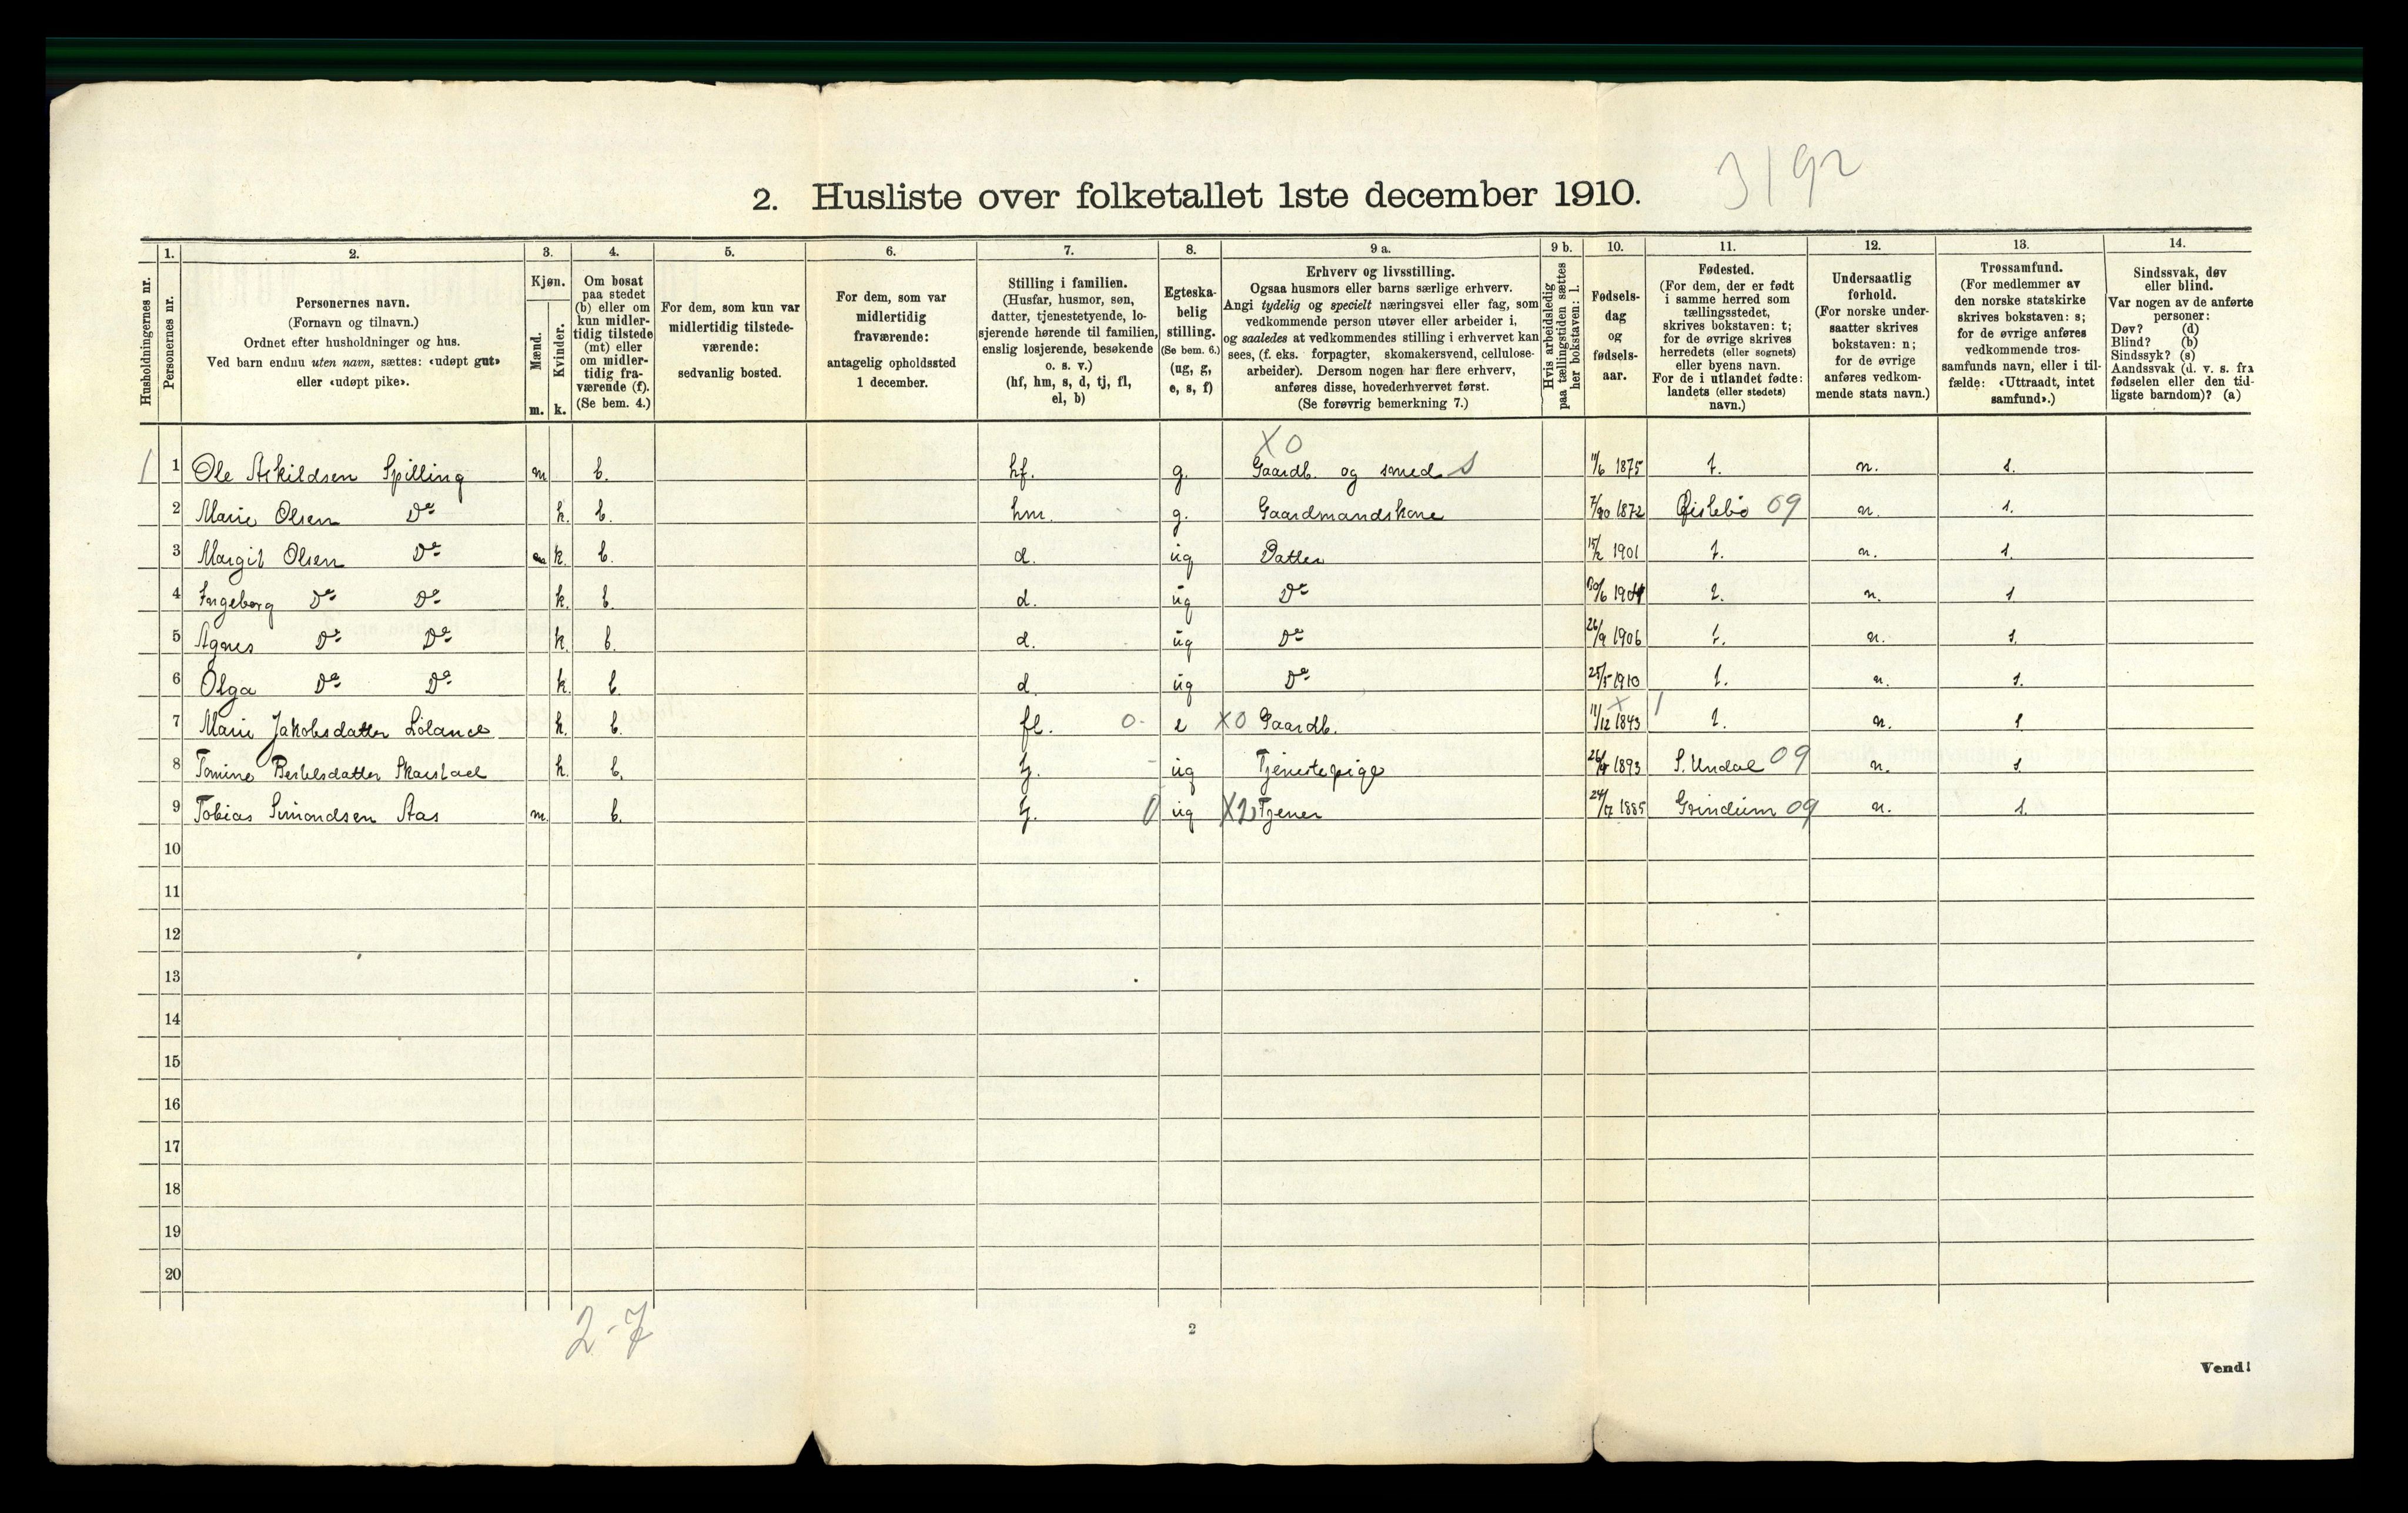 3192
2. Husliste over folketallet 1ste december 1910.
Husholdningernes nr.
1.
Personernes nr.
2.
Personernes navn.
(Fornavn og tilnavn.)
Ordnet efter husholdninger og hus.
Ved barn endnu uten navn, sættes: «udøpt gut»
eller «udøpt pike».
3.
Kjøn.
Mænd.
Kvinder.
m. k.
4.
Om bosat
paa stedet
(b) eller om
kun midler-
tidig tilstede
(mt) eller
om midler-
tidig fra-
værende (f).
(Se bem. 4.)
5.
For dem, som kun var
midlertidig tilstede-
værende:
sedvanlig bosted.
6.
For dem, som var
midlertidig
fraværende:
antagelig opholdssted
1 december.
7.
Stilling i familien.
(Husfar, husmor, søn,
datter, tjenestetyende, lo-
sjerende hørende til familien,
enslig losjerende, besøkende
o. s. v.)
(hf, hm, s, d, tj, fl,
el, b)
8.
Egteska-
belig
stilling.
(Se bem. 6.)
(ug, g,
e, s, f)
9 a.
Erhverv og livsstilling.
Ogsaa husmors eller barns særlige erhverv.
Angi tydelig og specielt næringsvei eller fag, som
vedkommende person utøver eller arbeider i,
og saaledes at vedkommendes stilling i erhvervet kan
sees, (f. eks. forpagter, skomakersvend, cellulose-
arbeider). Dersom nogen har flere erhverv,
anføres disse, hovederhvervet først.
(Se forøvrig bemerkning 7.)
9 b.
Hvis arbeidsledig
paa tællingstiden sættes
her bokstaven: l.
10.
Fødsels-
dag
og
fødsels-
aar.
11.
Fødested.
(For dem, der er født
i samme herred som
tællingsstedet,
skrives bokstaven: t;
for de øvrige skrives
herredets (eller sognets)
eller byens navn.
For de i utlandet fødte:
landets (eller stedets)
navn.)
12.
Undersaatlig
forhold.
(For norske under-
saatter skrives
bokstaven: n;
for de øvrige
anføres vedkom-
mende stats navn.)
13.
Trossamfund.
(For medlemmer av
den norske statskirke
skrives bokstaven: s;
for de øvrige anføres
vedkommende tros-
samfunds navn, eller i til-
fælde: «Uttraadt, intet
samfund».)
14.
Sindssvak, døv
eller blind.
Var nogen av de anførte
personer:
Døv? (d)
Blind? (b)
Sindssyk? (s)
Aandssvak (d. v. s. fra
fødselen eller den tid-
ligste barndom)? (a)
X O
1 1 Ole Askildsen Spilling m b. hf. g. Gaardb. og smed S 11/6 1875 t. n. s.
2 Marie Olsen Do k. b. hm. g. Gaardmandskone 1872 Øislebö 09 n. s.
3 Margit Olsen Do k. b. d. ug Datter 1901 t. n. s.
4 Ingeborg Do Do k. b. d. ug Do t. n. s
5 Agnes Do Do k. b. d. ug Do 26/9 1906 t. n. s.
6 Olga Do Do k. b. d. ug Do 25/5 1910 t. n. s.
7 Marie Jakobsdatter Lölance k. b. fl. 0- e X0 Gaardb. 11/12 1843 t. n. s
8 Tomine Bertelsdatter Skarstad k. b. tj. - ug Tjenestepige 1893 S. Undal 09 n. s
9 Tobias Simondsen Aas m. b. tj. 0 ug Tjener 1885 Grindum 09 n. s.
10
11
12
13
14
15
16
17
18
19
20
2-7
2
Vend!